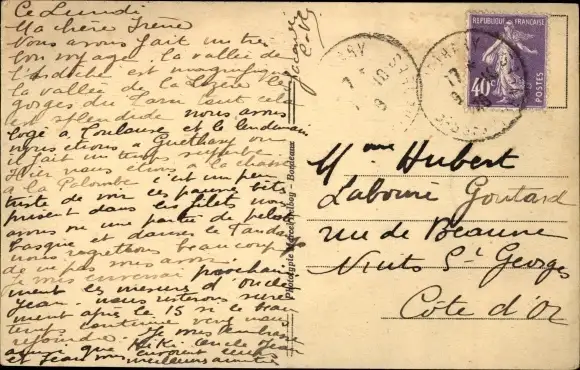 Ce Lundi
Ma chère Irène
Nous avons fait un très
bon voyage. la vallée de
l'ardèche est magnifique
la vallée de la Lozère les
gorges du Tarn tout cela
est splendide nous avons
logé à Toulouse et le lendemain
nous étions à Guethary ou
il fait un temps superbe
Hier nous étions à la chasse
a la Palombe c'est un peu
triste de voir ces pauvres bêtes
prisent dans les filets nous
avons vu une partie de pelote
Basque et danser le Fandango
nous regrettons beaucoup
de ne pas vous avoir.
Je vous enverrai prochaine
ment les mesures d'oncle
Jean. nous resterons sure
ment après le 15 si le beau
temps continue venez nous
rejoindre. Je vous embrasse
ainsi que Kiki. oncle Jean
et Jean vous envoient leurs
meilleures amitiés
Phototypie Marcel Delboy - Bordeaux
REPUBLIQUE FRANÇAISE
40c
POSTES
Mme Hubert
Labouré Goutard
rue de Beaune
Nuits St Georges
Côte d'Or